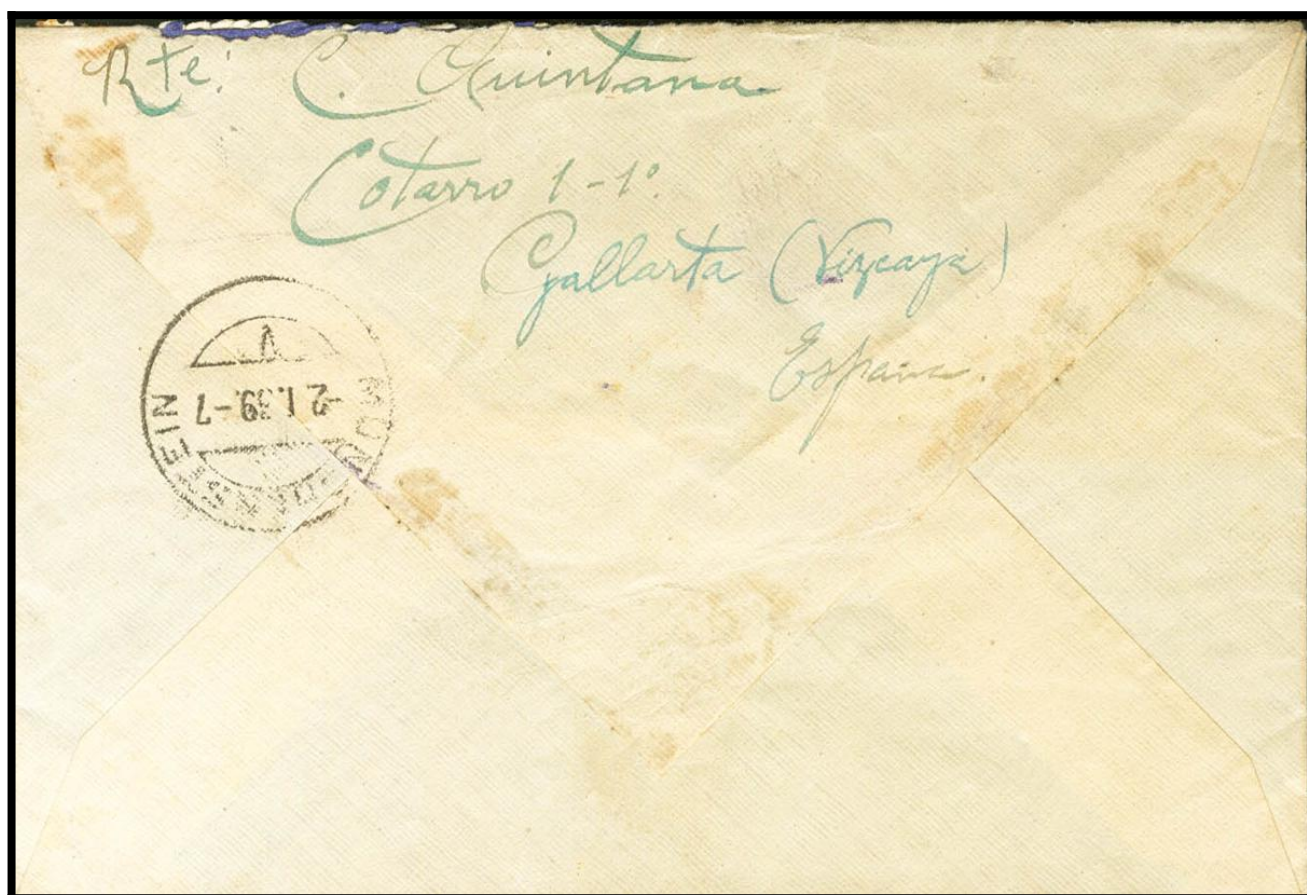 Rte: C. Quintana
Cotarro 1-1º.
Gallarta (Vizcaya)
España.
-2.I.39.-7